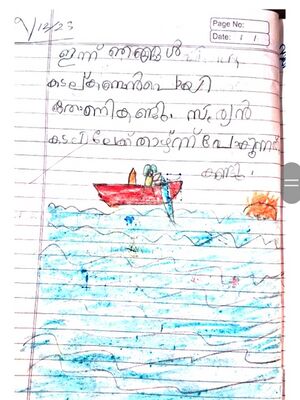 9/12/23
Page No:
Date: / /
ഇന്ന് ഞങ്ങൾ
കടല്
കണ്ടു. സൂര്യൻ
കടലിലേക് താഴ്ന്ന് പോകുന്നത്
കണ്ടു.